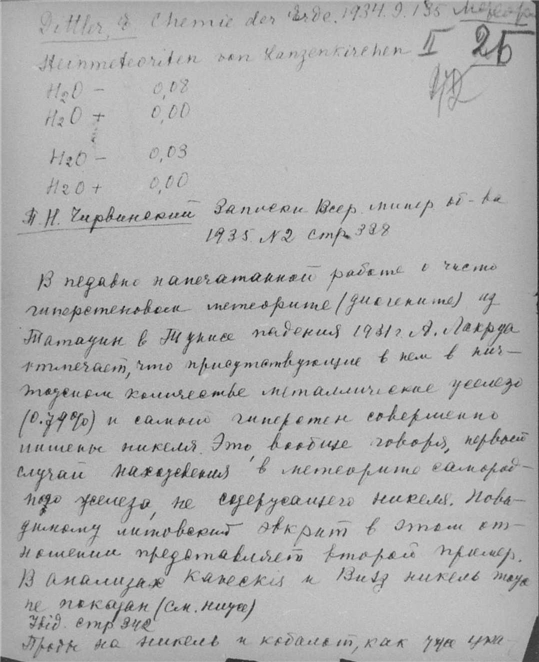 Dittler, E Chemie der Erde. 1934. 9. 135
II 2Б
Steinmeteoriten von Lanzenkirchen
H2O - 0,08
H2O + 0,00
H2O - 0,03
H2O + 0,00
П. Н. Чирвинский Записки Всер. минер об-ва
1935 N2 стр 338
В недавно напечатанной работе о чисто
гиперстеновом метеорите (диогените) из
Татауин в Тунисе падения 1931 г А. Лакруа
отмечает, что присутствующие в нем в нич-
тожном количестве металлическое железо
(0.74%) и самый гиперстен совершенно
лишены никеля. Это, вообще говоря, первый
случай нахождения в метеорите самород-
ного железа, не содержащего никеля. Пови-
димому литовский эвкрит в этом от-
ношении представляет второй пример.
В анализах и никель тоже
не показан (см. ниже)
Ibid. стр 342
Пробы на никель и кобальт, как уже